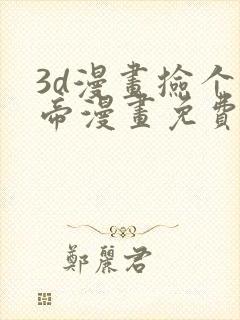 3d漫畫撿个
帝漫畫免費
鄭麗君